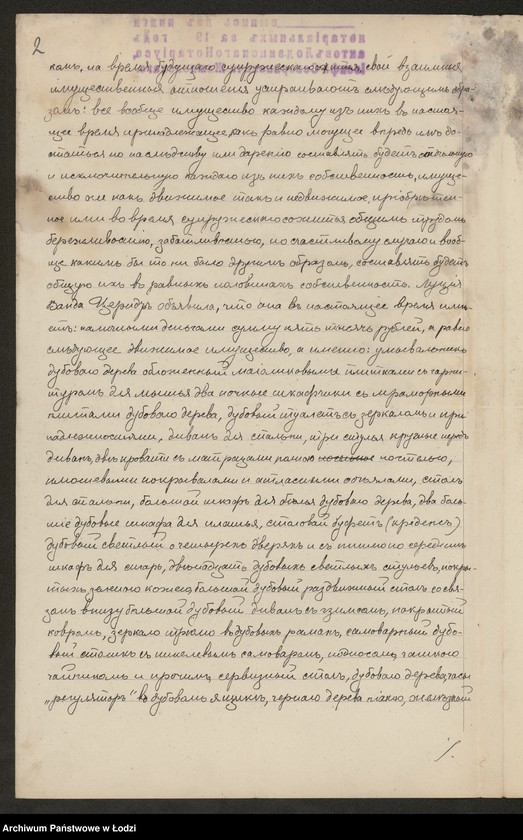 2
камъ, на время будущаго супружескаго сожитія свои взаимныя
имущественныя отношенія устраиваютъ слѣдующимъ обра-
зомъ: все вообще имущество каждому изъ нихъ въ настоя-
щее время принадлежащее, какъ равно могущее впредь имъ до-
статься по наслѣдству или даренію составлять будетъ отдѣльную
и исключительную каждаго изъ нихъ собственность, имуще-
ство же какъ движимое такъ и недвижимое, пріобрѣтен-
ное ими во время супружескаго сожитія общимъ трудомъ
бережливостію, заботливостью, по счастливому случаю и вооб-
ще какимъ бы то ни было другимъ образомъ, составлять будетъ
общую ихъ въ равныхъ половинахъ собственность. Луція
Ванда объявила, что она въ настоящее время имѣ-
етъ: наличными деньгами сумму пять тысячъ рублей, а равно
слѣдующее движимое имущество, а именно: умывальникъ
дубоваго дерева обложенный плитками съ гарни-
туромъ для мытья два ночные шкафчики съ мраморными
плитами дубоваго дерева, дубовый туалетъ съ зеркаломъ и при
надлежностями, диванъ для спальни, три стулья круглые передъ
диванъ, двѣ кровати съ матрацами постелью,
плюшевыми покрывалами и атласными одѣялами, столъ
для спальни, большой шкафъ для бѣлья дубоваго дерева, два боль-
шіе дубовые шкафа для платья, столовый буфетъ (креденсъ)
дубовый свѣтлый о четырехъ дверяхъ и съ
шкафъ для двѣнадцать дубовыхъ свѣтлыхъ стульевъ, покры-
тыхъ кожею, большой дубовый раздвижный столъ со свя-
зомъ внизу большой дубовый диванъ съ накрытый
ковромъ, зеркало трюмо въ дубовыхъ рамахъ, самоварный дубо-
вый столикъ съ никелевымъ самоваромъ, подносомъ,
чайникомъ и прочимъ, сервизный столъ, дубоваго дерева, часы
„регуляторъ" въ дубовомъ ящикѣ, чернаго дерева піано, желѣзный
·/.
Archiwum Państwowe w Łodzi